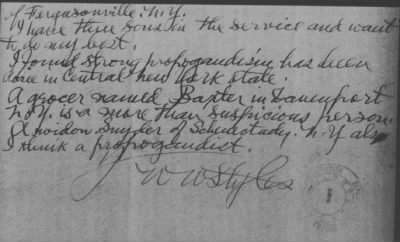 of Fergusonville. N.Y.
I have three sons in the service and want
to do my best.
I found strong propogandism has been
done in Central New York state.
A grocer named Baxter in Davenport
N.Y. is a more than suspicious person.
A widow Snyder of Schenectady. N.Y also
I think a propogandist.
W W Styles